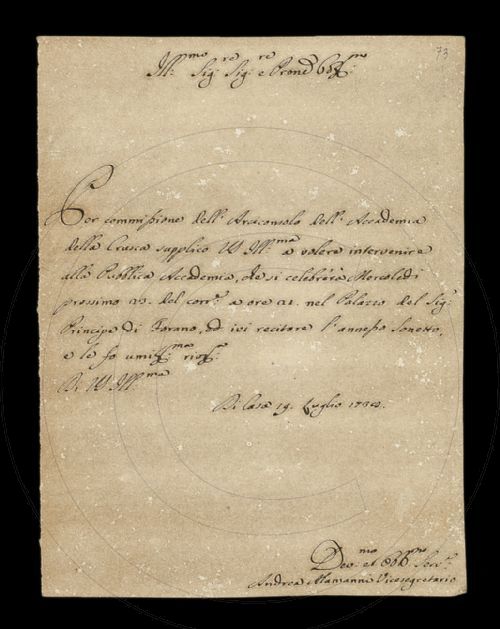 73
Ill:mo Sig:re Sig:re e Prone
Per commissione dell'Arciconsolo dell'Accademia
della Crusca supplico VS Ill:ma a volere intervenire
alla Pubblica Accademia, che si celebrerà Mercoledì
prossimo 23. del corr: a ore 21. nel Palazzo del Sig:
Principe di Forano, ed ivi recitare l'annesso Sonetto,
e le fo umiss:ma
Di VS Ill:ma
Di Casa 19. Luglio
Dev:mo et Obb:mo Serv:
Andrea Alamanni Vicesegretario